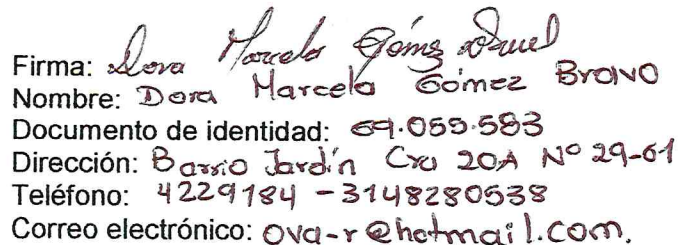 Firma: Dora Marcela Gómez
Nombre: Dora Marcela Gómez Bravo
Documento de identidad: 69.055.583
Dirección: Barrio Jardín Cra 20A Nº 29-61
Teléfono: 4229184 - 3148280538
Correo electrónico: ova-r@hotmail.com.